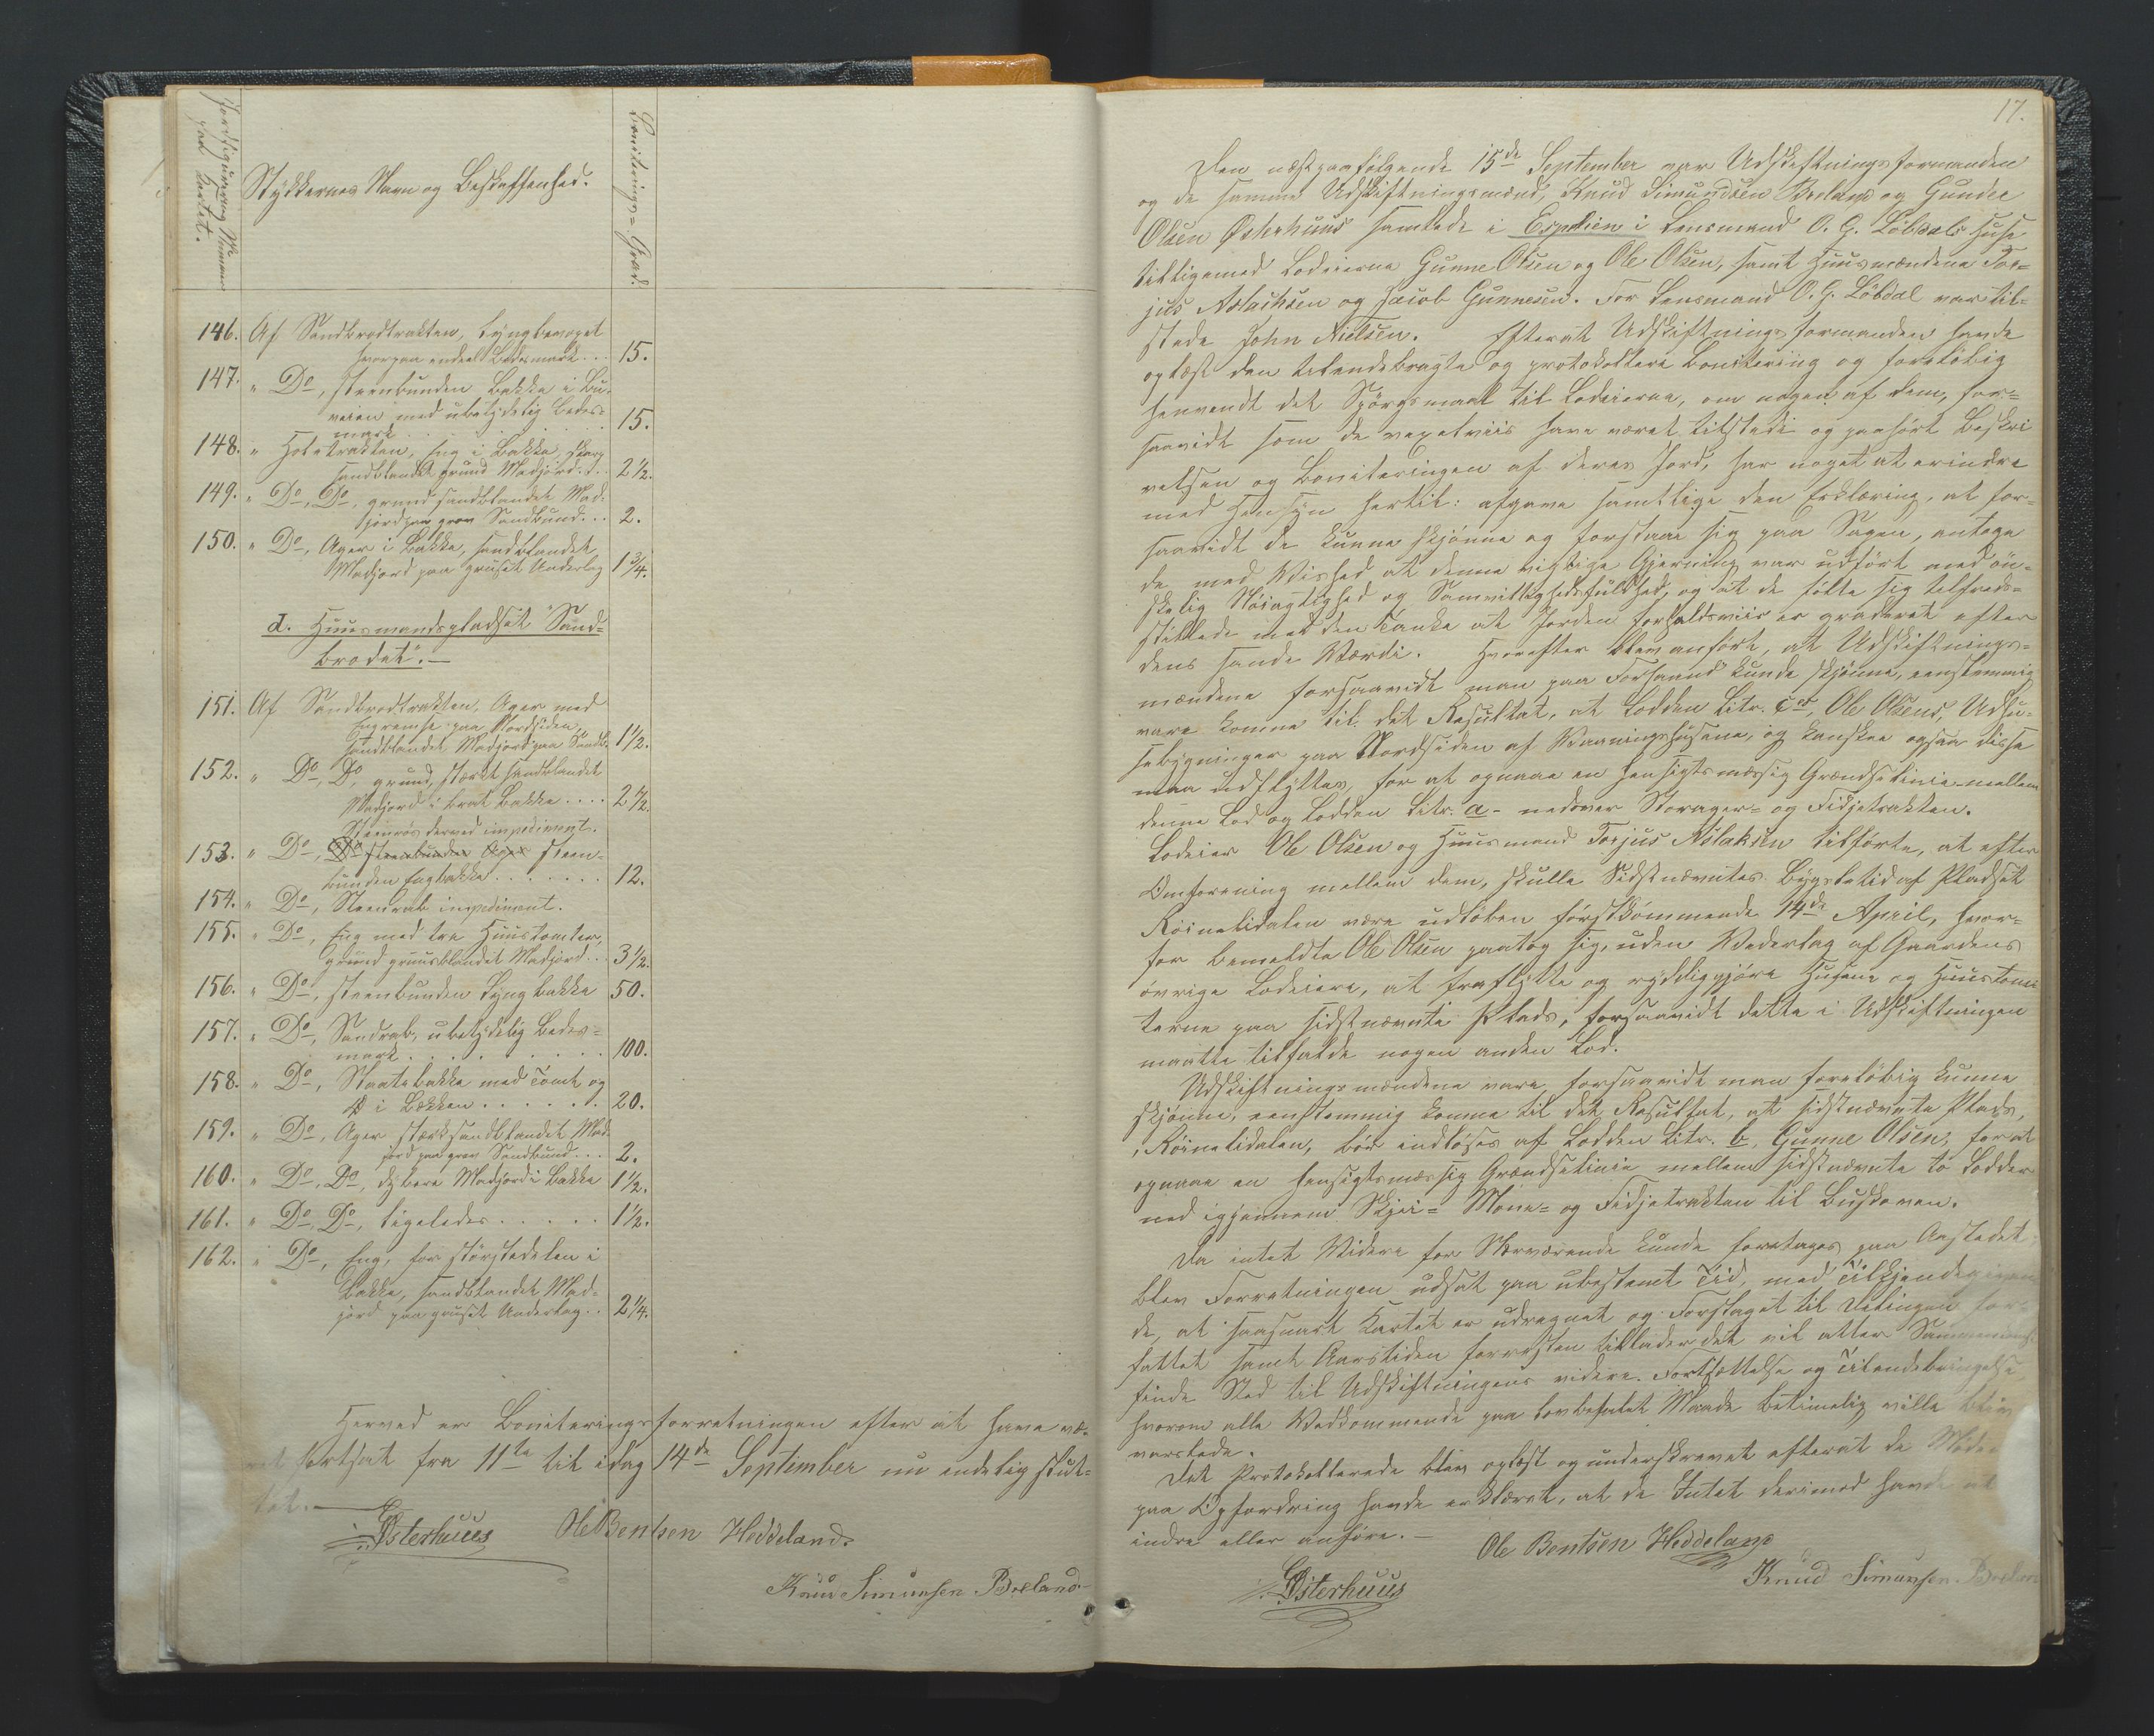 Jordfigurernes Nummer
paa Kartet.
Stykkernes Navn og Beskaffenhed.
Boniterings=Grad.
146. Af Sandbrodtrakten, Lyngbevoxet
hvorpaa endeel Bedesmark... 15.
147. " Do, steenbunden Bakke i Bu-
veien med ubetydelig Bedes-
mark . . . . . . . 15.
148. " Holetrakten, Eng i Bakke, skarp
sandblandet grund Madjord... 2 1/2.
149. " Do, Do, grund sandblandet Mad-
jord paa grov Sandbund... 2.
150. " Do, Ager i Bakke, sandblandet
Madjord paa gruset Underlag 1 3/4.
d. Huusmandspladset "Sand=
brodet". —
151. Af Sandbrodtrakten, Ager med
Engremse paa Nordsiden,
sandblandet Madjord paa Sandb. 1 1/2.
152. " Do, Do, grund, stærkt sandblandet
Madjord i brat Bakke .... 2 1/2.
Steenrös derved impediment.
153. " Do, Do steenbunden Ager steen-
bunden Engbakke . . . . . . . 12.
154. " Do, Steenrab impediment.
155. " Do, Eng med tre Huustomter,
grund gruusblandet Madjord... 3 1/2.
156. " Do, steenbunden Lyngbakke 50.
157. " Do, Sandrab, ubetydelig Bedes=
mark . . . . . . . . 100.
158. " Do, Slaatebakke med Tomt og
i Bækken . . . . . . 20.
159. " Do, Ager stærk sandblandet Mad-
jord paa grov Sandbund ... 2.
160. " Do, Do, dybere Madjord i Bakke 1 1/2.
161. " Do, Do, ligeledes . . . . . 1 1/2.
162. " Do, Eng, for störstedelen i
Bakke, sandblandet Mad-
jord paa gruset Underlag .. 2 1/4.
Herved er Boniteringsforretningen efter at have væ-
ret fortsat fra 11te til idag 14de September nu endelig slut-
tet. —
Østerhuus Ole Bentsen Heddeland.
Knud Simunsen Breland
17.
Den næstpaafölgende 15de September var Udskiftningsformanden
og de samme Udskiftningsmænd, Knud Simundsen Breland og Gunder
Olsen Østerhuus samlede i Espelien i Lensmand O. G. Löbdals Huse
tilligemed Lodeierne Gunne Olsen og Ole Olsen, samt Huusmændene Tor=
jus Aslachsen og Jacob Gunnesen. For Lensmand O. G. Löbdal var til-
stede John Nielsen. Efterat Udskiftningsformanden havde
oplæst den tilendebragte og protokollere Bonitering og foreløbig
henvendt det Spörgsmaal til Lodeierne, om nogen af dem, for=
saavidt som de vexelviis have været tilstede og paahört Beskri
velsen og Boniteringen af deres Jord, har noget at erindre
med Hensyn hertil: afgave samtlige den Erklæring, at for=
saavidt de kunne skjönne og forstaae sig paa Sagen, antoge
de med Vished at denne vigtige Gjerning var udfört med ön-
skelig Nöiagtighed og Samvittighedsfuldhed, og at de fölte sig tilfreds=
stillede med den Tanke at Jorden forholdsviis er graderet efter
dens sande Værdi. Hvorefter blev anfört, at Udskiftnings=
mændene forsaavidt man paa Forhaand kunde skjönne, eenstemmig
vare komne til det Resultat, at Lodden Litr. c, Ole Olsens, Udhu-
sebygninger paa Nordsiden af Vaaningshusene, og kanskee ogsaa disse
maa udflyttes, for at opnaae en hensigtsmæssig Grændselinie mellem
denne Lod og Lodden Litr. a. nedover Storager= og Fidjetrakten.
Lodeier Ole Olsen og Huusmand Torjus Aslaksen tilförte, at efter
Omforening mellem dem, skulle Sidstnævntes Bygseltid af Pladset
Röinelidalen være udlöben förstkommende 14de April, hvor=
for bemeldte Ole Olsen paatog sig, uden Vederlag af Gaardens
övrige Lodeiere, at fraflytte og ryddiggjöre Husene og Huustom
terne paa sidstnævnte Plads, forsaavidt dette i Udskiftningen
maatte tilfalde nogen anden Lod.
Udskiftningsmændene vare forsaavidt man forelöbig kunne
skjönne, eenstemmig komne til det Resultat, at sidstnævnte Plads,
Röinelidalen, bör indlöses af Lodden Litr. b, Gunne Olsen, for at
opnaae en hensigtsmæssig Grændselinie mellem sidstnævnte to Lodder
ned igjennem Skjei= Mone= og Fidjetrakten til Buskoven.
Da intet Videre for Nærværende kunde foretages paa Aastedet,
blev Forretningen udsat paa ubestemt Tid, med Tilkjendegiven
de, at saasnart Kartet er udregnet og Forslaget til Delingen for-
fattet samt Aarstiden forresten tillader det vil atter
finde Sted til Udskiftningens videre Fortsættelse og Tilendebringelse,
hvorom alle Vedkommende paa lovbefalet Maade betimelig ville bliv
varslede.
Det Protokollerede blev oplæst og underskrevet efterat de Mödte
paa Opfordring havde erklæret, at de Intet derimod havde at
indre eller anföre. —
Ole Bentsen Heddeland
Østerhuus
Knud Simunsen Brelan